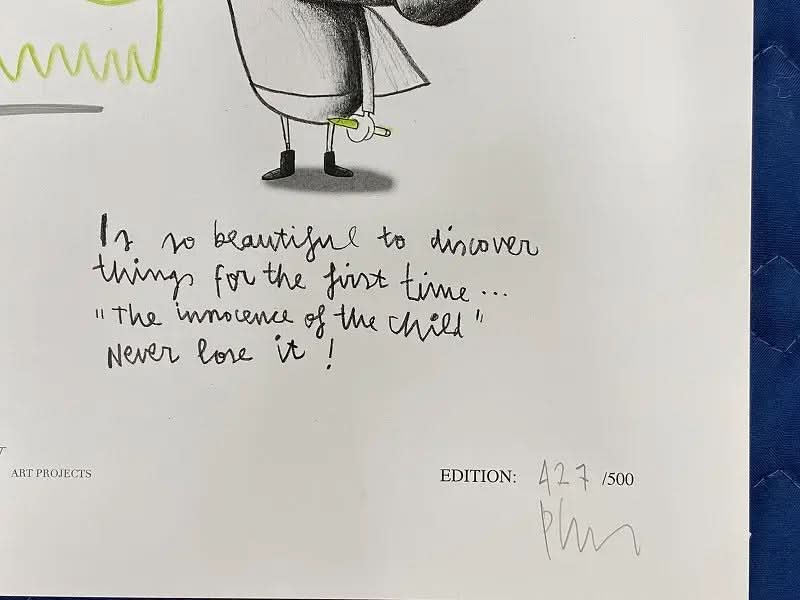 Is so beautiful to discover
things for the first time...
"The innocence of the child"
Never lose it!
ART PROJECTS
EDITION: 427 /500